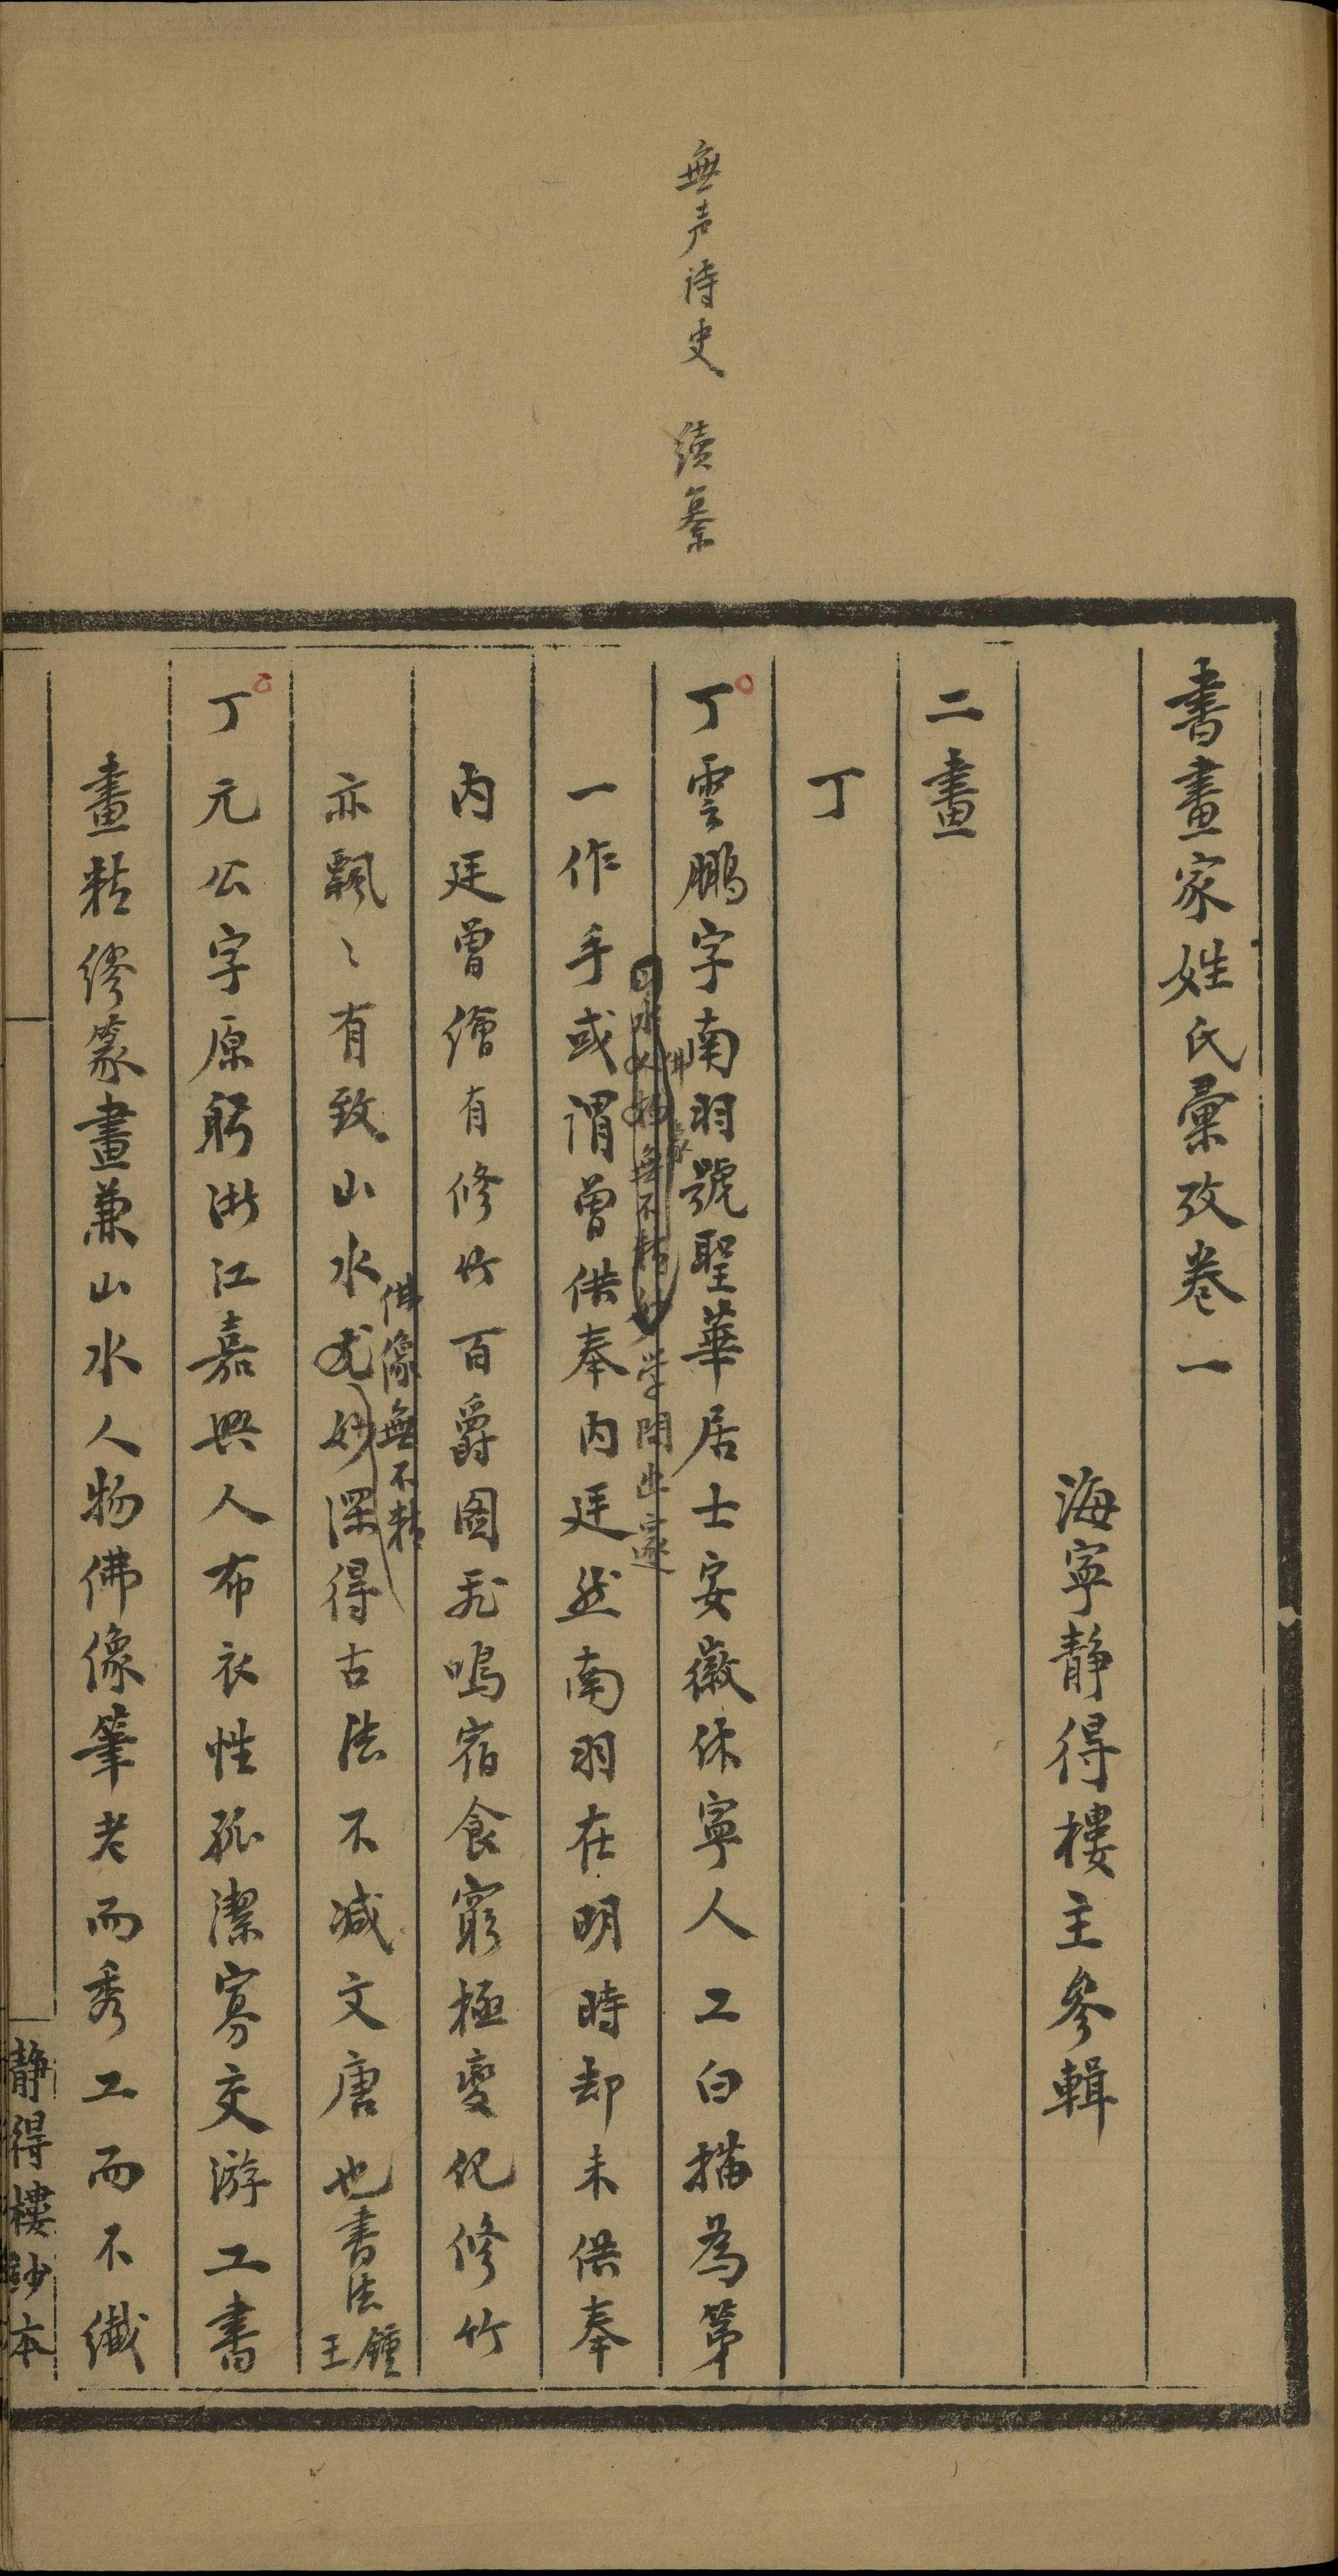 無声诗史　續纂
書畫家姓氏彙攷卷一
海寧靜得樓主參輯
二畫
丁
丁雲鵬字南羽號聖華居士安徽休寧人工白描為第
佛像
山水人物無不精妙學問出邃
一作手或謂曾供奉内廷然南羽在明時却未供奉
内廷曾繪有修竹百爵圖飛鳴宿食窮極變化修竹
佛像無不精
亦飄〻有致山水尤妙深得古法不減文唐也書法鍾王
丁元公字原躬浙江嘉興人布衣性孤潔寡交游工書
畫精繆篆畫兼山水人物佛像筆老而秀工而不纖
靜得樓鈔本